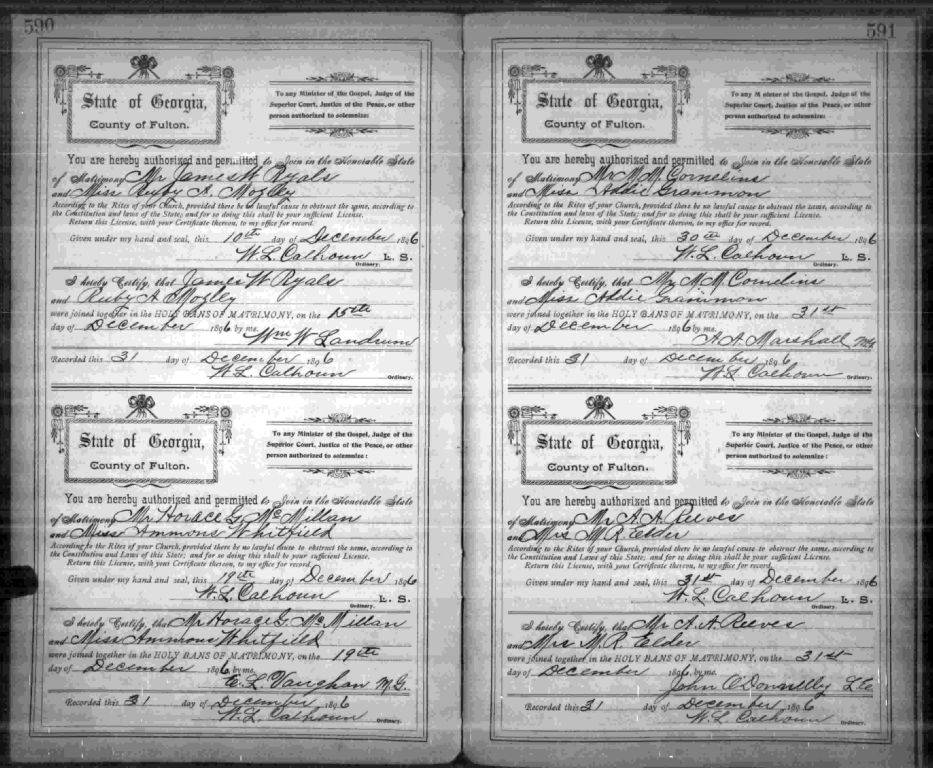 590
State of Georgia,
County of Fulton.
To any Minister of the Gospel, Judge of the
Superior Court, Justice of the Peace, or other
person authorized to solemnize:
You are hereby authorized and permitted to Join in the Honorable State
of Matrimony Mr James W Ryals
and Miss Ruby A. Mozley
According to the Rites of your Church, provided there be no lawful cause to obstruct the same, according to
the Constitution and laws of the State; and for so doing this shall be your sufficient License.
Return this License, with your Certificate thereon, to my office for record.
Given under my hand and seal, this 10th day of December 1896.
W. L. Calhoun L. S.
Ordinary.
I hereby Certify, that James W Ryals
and Ruby A Mozley
were joined together in the HOLY BANS OF MATRIMONY, on the 15th
day of December 1896 by me.
Wm W Landrum
Recorded this 31 day of December 1896
W. L. Calhoun
Ordinary.
State of Georgia,
County of Fulton.
To any Minister of the Gospel, Judge of the
Superior Court, Justice of the Peace, or other
person authorized to solemnize:
You are hereby authorized and permitted to Join in the Honorable State
of Matrimony Mr Horace G. McMillan
and Miss Ammons Whitfield
According to the Rites of your Church, provided there be no lawful cause to obstruct the same, according to
the Constitution and Laws of this State; and for so doing this shall be your sufficient License.
Return this License, with your Certificate thereon, to my office for record.
Given under my hand and seal, this 19th day of December 1896
W. L. Calhoun L. S.
Ordinary.
I hereby Certify, that Mr Horace G McMillan
and Miss Ammons Whitfield
were joined together in the HOLY BANS OF MATRIMONY, on the 19th
day of December 1896 by me.
E. L. Vaughan M. G.
Recorded this 31 day of December 1896
W. L. Calhoun
Ordinary.
591
State of Georgia,
County of Fulton.
To any Minister of the Gospel, Judge of the
Superior Court, Justice of the Peace, or other
person authorized to solemnize:
You are hereby authorized and permitted to Join in the Honorable State
of Matrimony Mr M. M. Cornelius
and Miss Addie Grammon
According to the Rites of your Church, provided there be no lawful cause to obstruct the same, according to
the Constitution and laws of the State; and for so doing this shall be your sufficient License.
Return this License, with your Certificate thereon, to my office for record.
Given under my hand and seal, this 30th day of December 1896
W. L. Calhoun L. S.
Ordinary.
I hereby Certify, that Mr M M Cornelius
and Miss Addie Grammon
were joined together in the HOLY BANS OF MATRIMONY, on the 31st
day of December 1896 by me.
A. A. Marshall MG
Recorded this 31 day of December 1896
W. L. Calhoun
Ordinary.
State of Georgia,
County of Fulton.
To any Minister of the Gospel, Judge of the
Superior Court, Justice of the Peace, or other
person authorized to solemnize:
You are hereby authorized and permitted to Join in the Honorable State
of Matrimony Mr A. A. Reeves
and Mrs M. R. Elder
According to the Rites of your Church, provided there be no lawful cause to obstruct the same, according to
the Constitution and Laws of this State; and for so doing this shall be your sufficient License.
Return this License, with your Certificate thereon, to my office for record.
Given under my hand and seal, this 31st day of December 1896
W. L. Calhoun L. S.
Ordinary.
I hereby Certify, that Mr A. A Reeves
and Mrs M. R. Elder
were joined together in the HOLY BANS OF MATRIMONY, on the 31st
day of December 1896, by me.
John O'Donnelly
Recorded this 31 day of December 1896
W. L. Calhoun
Ordinary.